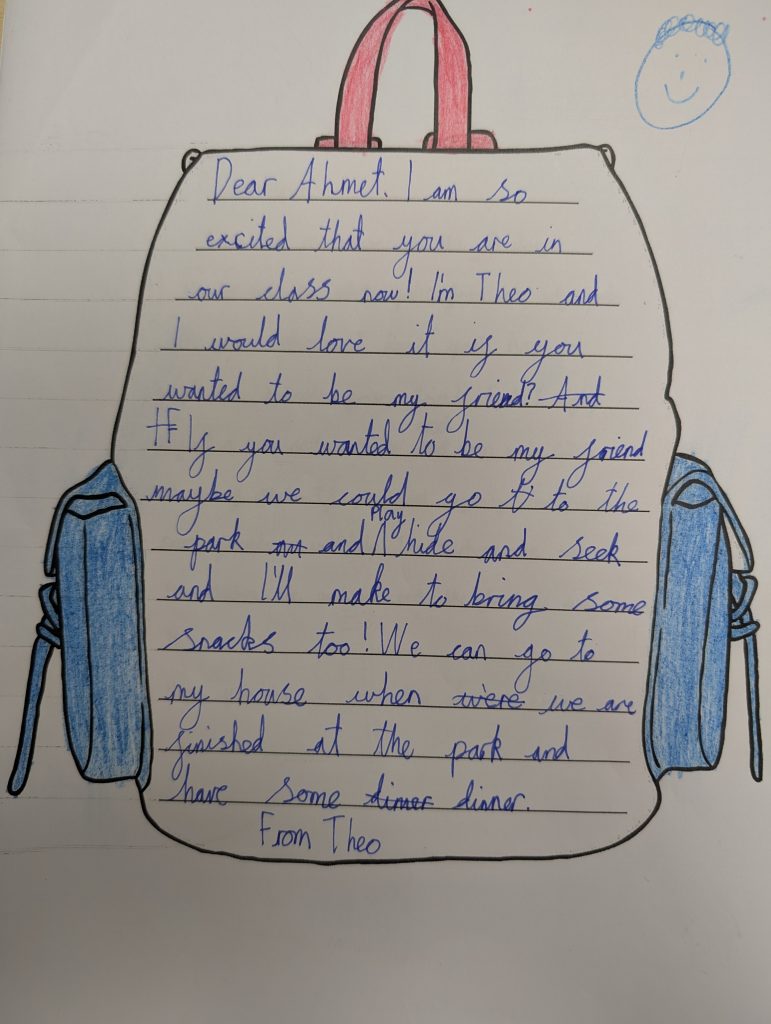 Dear Ahmet. I am so
excited that you are in
our class now! I'm Theo and
I would love it if you
wanted to be my friend? And
If you wanted to be my friend
maybe we could go to the
park and play hide and seek
and I'll make to bring some
snacks too! We can go to
my house when we are
finished at the park and
have some dinner.
From Theo